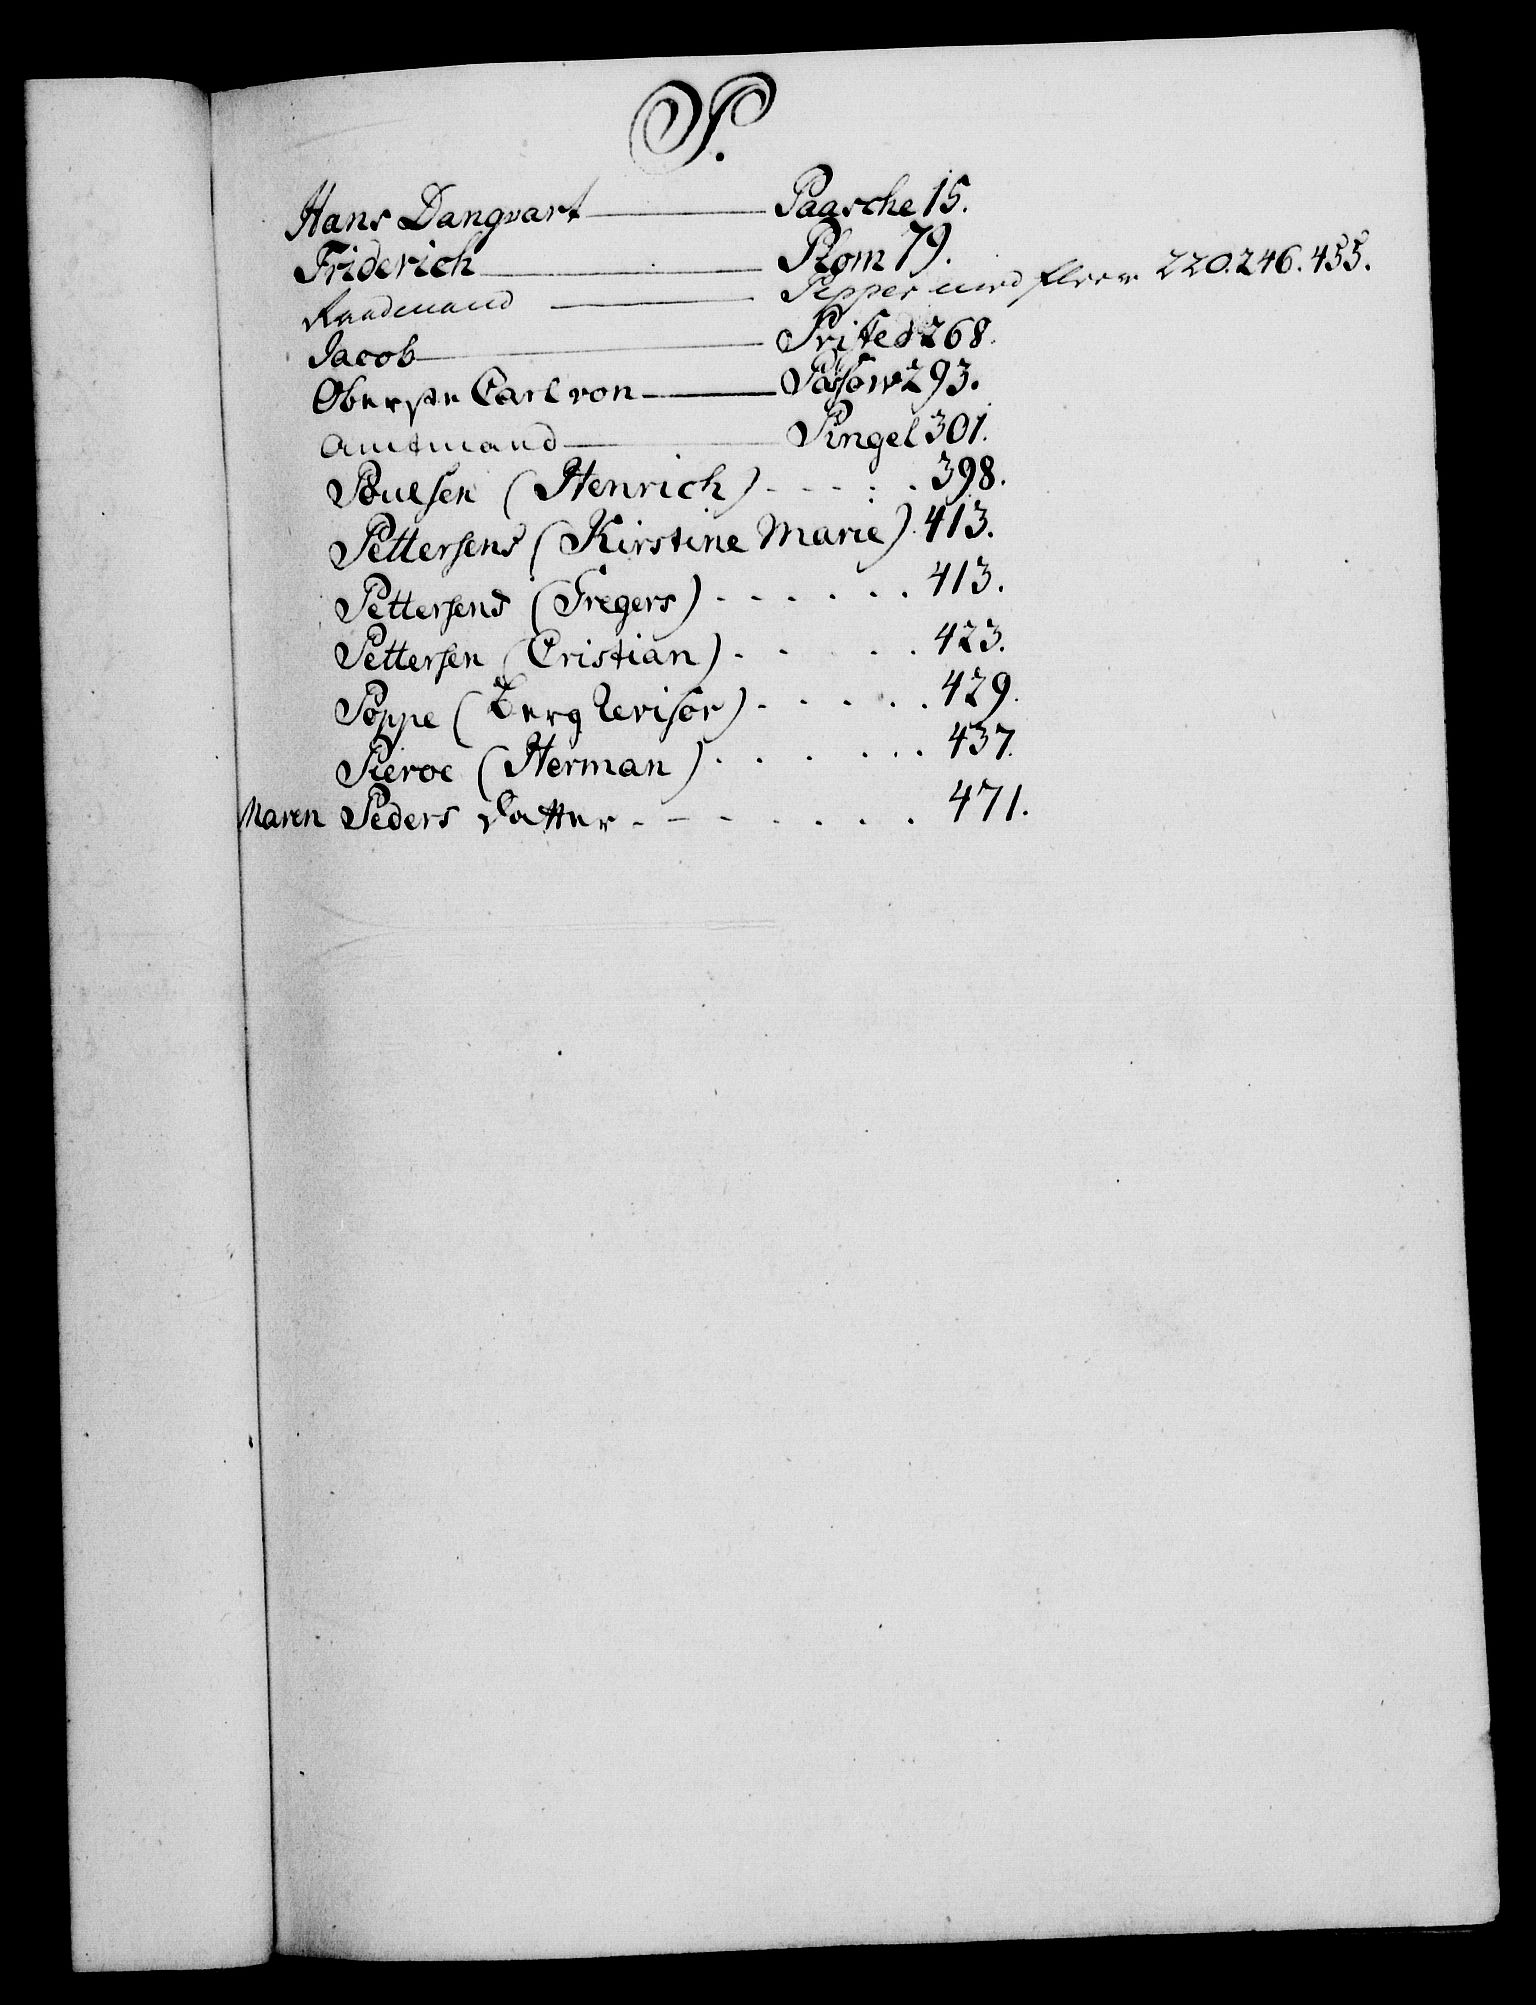 P.
Hans Dangvart — Paasche 15.
Friderich — Plom 79.
Raadmand — Pepper med fleere 220. 246. 455.
Jacob — Pristed 268.
Oberste Carl von — Passow 293.
Amtmand — Pingel 301.
Poulsen (Henrich) - - - . . 398.
Pettersens (Kirstine Marie) 413.
Pettersens (Fregers) . . . . . . 413.
Pettersen (Cristian) . . . . . 423.
Poppe (Berg Revisor) . . . . . 429.
Pieroe (Herman) . . . . . . 437.
Maren Peders Datter - - - . . . . 471.